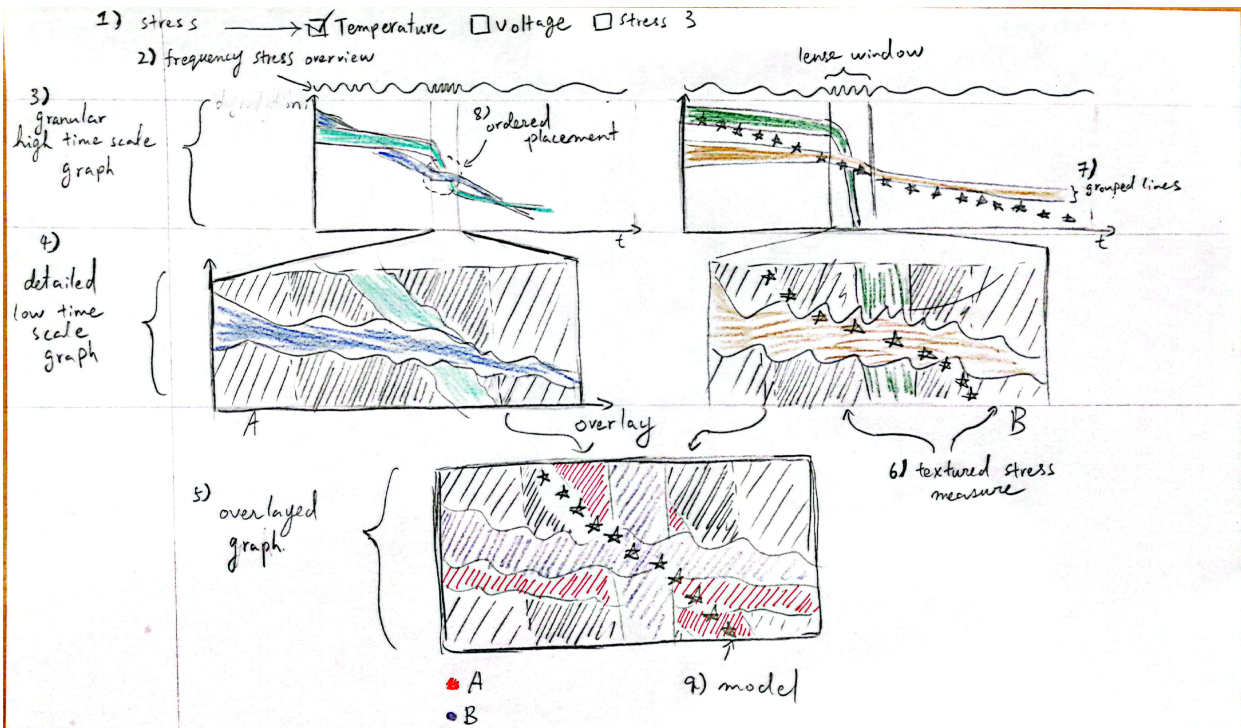 1) stress Temperature Voltage Stress 3
2) frequency stress overview
lense window
3)
granular
high time scale
graph
8) ordered
placement
7)
grouped lines
t
t
4)
detailed
low time
scale
graph
A
overlay
B
6) textured stress
measure
5)
overlayed
graph.
A
B
9) model